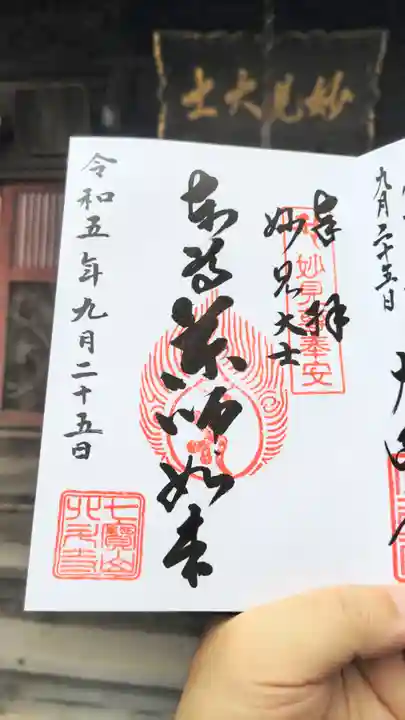 妙見大士
九月二十五日
奉拝
妙見大士
妙見尊奉安
本尊薬師如来
令和五年九月二十五日
七寶山